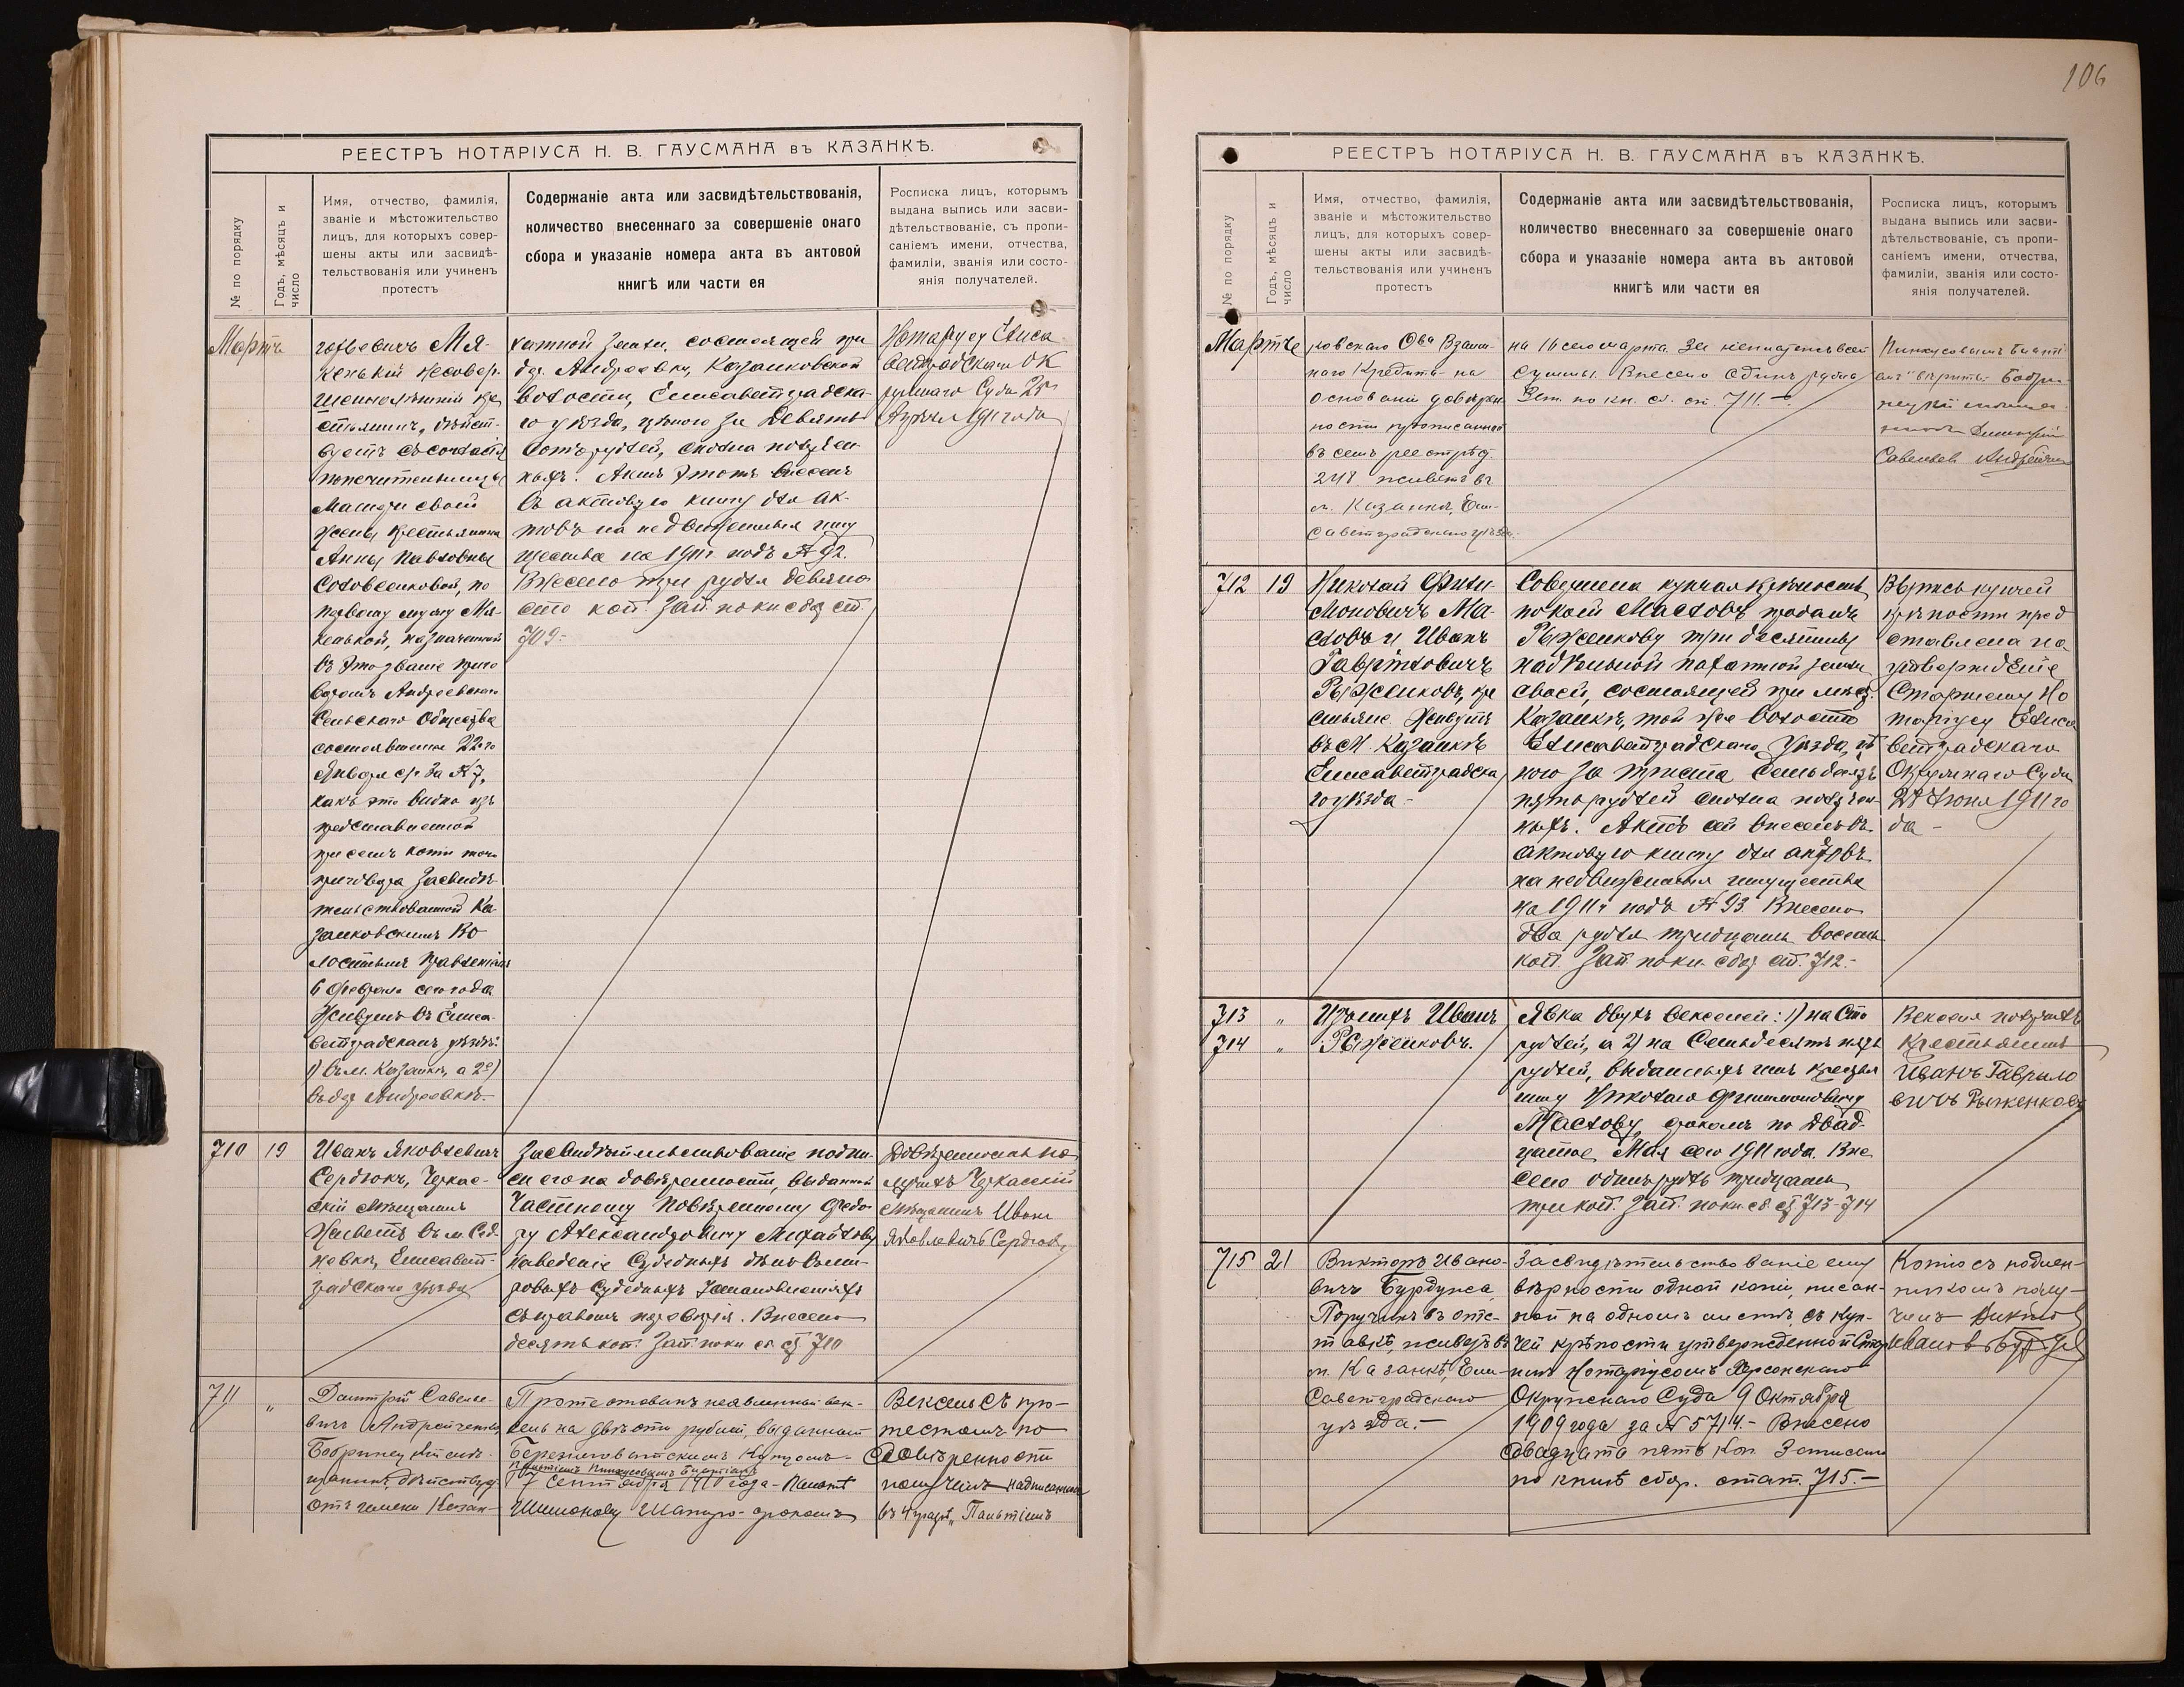 РЕЕСТРЪ НОТАРІУСА Н. В. ГАУСМАНА въ КАЗАНКѢ.
№ по порядку
Годъ, мѣсяцъ и
число
Имя, отчество, фамилія,
званіе и мѣстожительство
лицъ, для которыхъ совер-
шены акты или засвидѣ-
тельствованія или учиненъ
протестъ
Содержаніе акта или засвидѣтельствованія,
количество внесеннаго за совершеніе онаго
сбора и указаніе номера акта въ актовой
книгѣ или части ея
Росписка лицъ, которымъ
выдана выпись или засви-
дѣтельствованіе, съ пропи-
саніемъ имени, отчества,
фамиліи, званія или состо-
янія получателей.
Мартъ
Мя-
кенькій несовер-
шеннолѣтній кре
стьянинъ, дѣйст-
вуетъ съ согласія
попечительницы
матери своей
жены крестьянина
Анны Павловны
Соловьенковой, по
первому мужу Мя-
кенькой, назначенной
въ это званіе приго
воромъ Андреевскаго
Сельскаго Общества
состоявшемся 22го
Января с/г за № 7,
какъ это видно изъ
представленной
при семъ копіи того
приговора засвидѣ-
тельствованной Ка-
занковскимъ Во
лостнымъ Правленіемъ
6 Февраля сего года
Живутъ въ Елиса-
ветградскомъ уѣздѣ:
1) въ м. Казанкѣ, а 2й)
въ дер Андреевкѣ.-
хатной земли, состоящей при
дер. Андреевкѣ, Казанковской
волости, Елисаветградска-
го уѣзда, цѣною за девять
сотъ рублей, сполна получен
ныхъ. Актъ этотъ внесенъ
въ актовую книгу для ак-
товъ на недвижимыя иму
щества на 1911г. подъ № 92.
Внесено три рубля девяно
сто коп. Зап. по кн сбор ст.
709.-
Нотаріусу Елиса
ветградскаго Ок
ружнаго Суда 25
Апрѣля 1911 года
710
19
Иванъ Яковлевичъ
Сердюкъ, Черкас-
скій мѣщанинъ
Живетъ въ м. Сед-
невкѣ, Елисавет-
градскаго уѣзда
Засвидѣтельствованіе подпи-
си его на довѣренности, выданной
Частному Повѣренному Федо
ру Александровичу Михайлову
на веденіе судебныхъ дѣлъ въ ми-
ровыхъ судебныхъ установленіяхъ
съ правомъ передовѣрія. Внесено
десять коп. Зап. по кн сб ст 710
Довѣренность по
лучилъ Черкасскій
мѣщанинъ Иванъ
Яковлевичъ Сердюкъ
711
"
Дмитрій Савелье-
вичъ Андрейченко
Бобринецкій мѣ-
щанинъ, дѣйствуетъ
отъ имени Казан-
Протестованъ неявленный век-
сель на двѣсти рублей, выданный
Березниговатскимъ Купцомъ-
17 Сентября 1910 года-
Шимонову Шапиро- срокомъ
Вексель съ про-
тестомъ по
довѣренности
получилъ надписанная
въ 4 графѣ
РЕЕСТРЪ НОТАРІУСА Н. В. ГАУСМАНА въ КАЗАНКѢ.
106
№ по порядку
Годъ, мѣсяцъ и
число
Имя, отчество, фамилія,
званіе и мѣстожительство
лицъ, для которыхъ совер-
шены акты или засвидѣ-
тельствованія или учиненъ
протестъ
Содержаніе акта или засвидѣтельствованія,
количество внесеннаго за совершеніе онаго
сбора и указаніе номера акта въ актовой
книгѣ или части ея
Росписка лицъ, которымъ
выдана выпись или засви-
дѣтельствованіе, съ пропи-
саніемъ имени, отчества,
фамиліи, званія или состо-
янія получателей.
Мартъ
ковскаго Ова Взаим-
наго Кредита- на
основаніи довѣрен-
ности прописанной
въ семъ реестрѣ
248 живетъ въ
м. Казанкѣ, Ели-
саветградскаго уѣзда.-
на 16 сего марта. За неплатежъ всей
суммы. Внесено одинъ рубль
Зап. по кн. сб. ст. 711.-
вѣрить: Бобри-
нецкій мѣща-
нинъ Дмитрій
Савельевъ Андрейченко
712
19
Николай Фили
моновичъ Ма-
словъ и Иванъ
Гавриловичъ
Рыженковъ, кре
стьяне. Живутъ
въ м. Казанкѣ
Елисаветградска
го уѣзда.-
Совершена купчая крѣпость
по коей Масловъ продалъ
Рыженкову три десятины
надѣльной пахатной земли
своей, состоящей при мѣст.
Казанкѣ, той же волости
Елисаветградскаго уѣзда, цѣ
ною за триста семьдесятъ
пять рублей сполна получен-
ныхъ. Актъ сей внесенъ въ
актовую книгу для актовъ
на недвижимыя имущества
на 1911 г подъ № 93. Внесено
два рубля тридцать восемь
коп. Зап. по кн. сбор ст. 712.-
Выпись купчей
крѣпости пред
ставлена на
утвержденіе
Старшему Но
таріусу Елиса
ветградскаго
Окружнаго Суда
27 Іюня 1911 го
да-
713
"
714
"
Изъ нихъ Иванъ
Рыженковъ.
Явка двухъ векселей: 1) на сто
рублей, а 2) на семьдесятъ пять
рублей, выданныхъ имъ крестья
нину Николаю Филимоновичу
Маслову, срокомъ по двад-
цатое Мая сего 1911 года. Вне
сено одинъ рубль тридцать
три коп. Зап. по кн. сб. ст. 713-714
Векселя получилъ
Крестьянинъ
Иванъ Гаврило
вичъ Рыженковъ
715
21
Викторъ Ивано-
вичъ Бурдунса
Поручикъ въ отс-
тавкѣ, живетъ въ
м. Казанкѣ, Ели-
саветградскаго
уѣзда.-
Засвидѣтельствованіе ему
вѣрности одной копіи, писан-
ной на одномъ листѣ, съ куп-
чей крѣпости утвержденной Стар
шимъ Нотаріусомъ Херсонскаго
Окружнаго Суда 9 Октября
1909 года за № 5714- Внесено
двадцать пять коп. Записано
по книгѣ сбор. стат. 715.-
Копію съ подлин-
никомъ полу-
чилъ